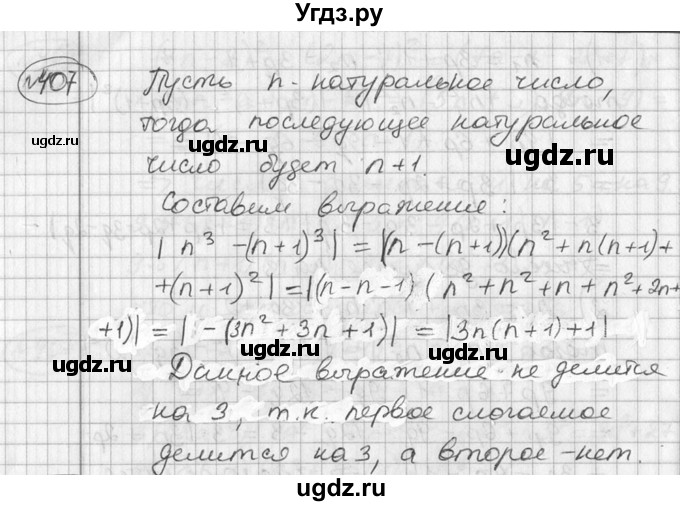 Угдз.ру
№407 Пусть n - натуральное число,
тогда последующее натуральное
число будет n+1.
Составим выражение:
| n³ -(n+1)³| = |(n -(n+1))(n²+n(n+1)+
+(n+1)²| = |(n-n-1) (n²+n²+n+n²+2n+
+1)| = | -(3n²+3n+1)| = |3n(n+1)+1|
Данное выражение не делится
на 3, т.к. первое слогаемое
делится на 3, а второе -нет.
ugdz.ru
ugdz.ru
ugdz.ru
ugdz.ru
ugdz.ru
ugdz.ru
ugdz.ru
ugdz.ru
ugdz.ru
ugdz.ru